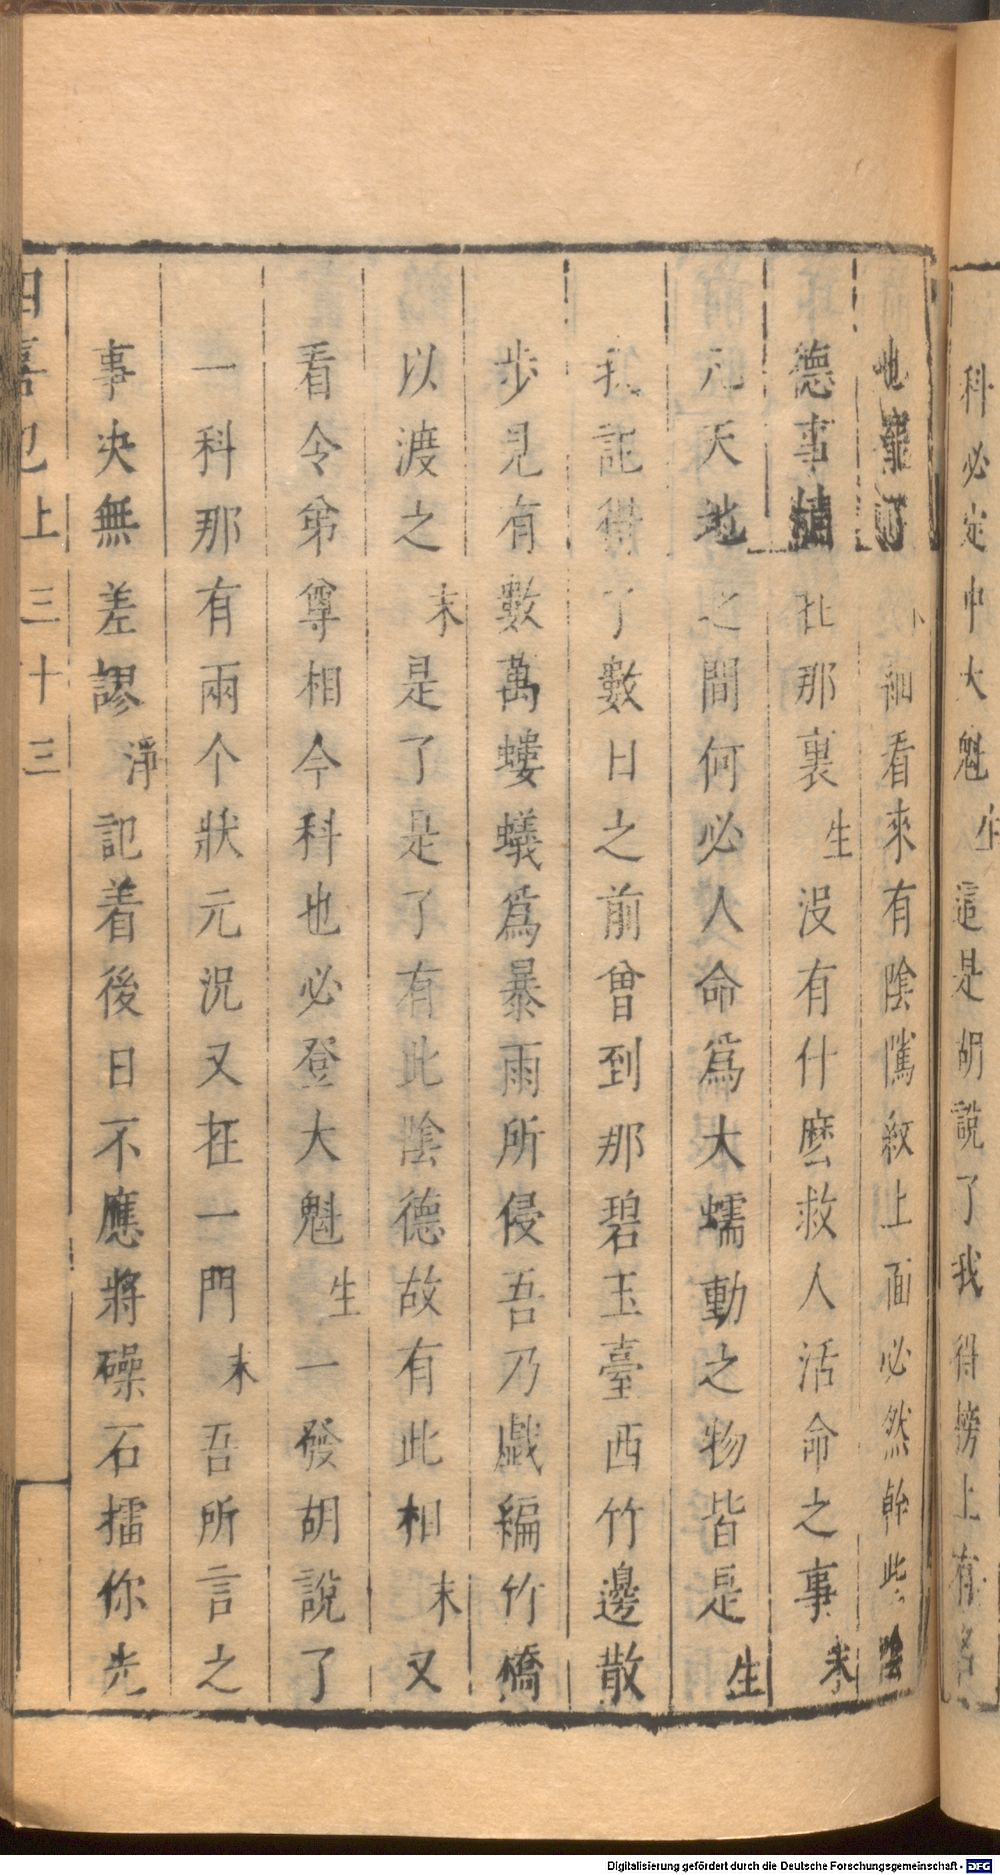 科必定中大魁生這是胡說了我得榜上有名
也罷了
細看來有陰隲紋上面必然幹些陰
德事情在那裏生沒有什麽救人活命之事末
元天地之間何必人命爲大蠕動之物皆是生
我記得了數日之前曾到那碧玉臺西竹邊散
步見有數萬螻蟻爲暴雨所侵吾乃戯編竹橋
以渡之末是了是了有此陰德故有此相末又
看令弟尊相今科也必登大魁生一發胡說了
一科那有兩个狀元況又在一門末吾所言之
事决無差謬淨記着後日不應將磉石擂你先
四喜記上三十三
Digitalisierung gefördert durch die Deutsche Forschungsgemeinschaft - DFG